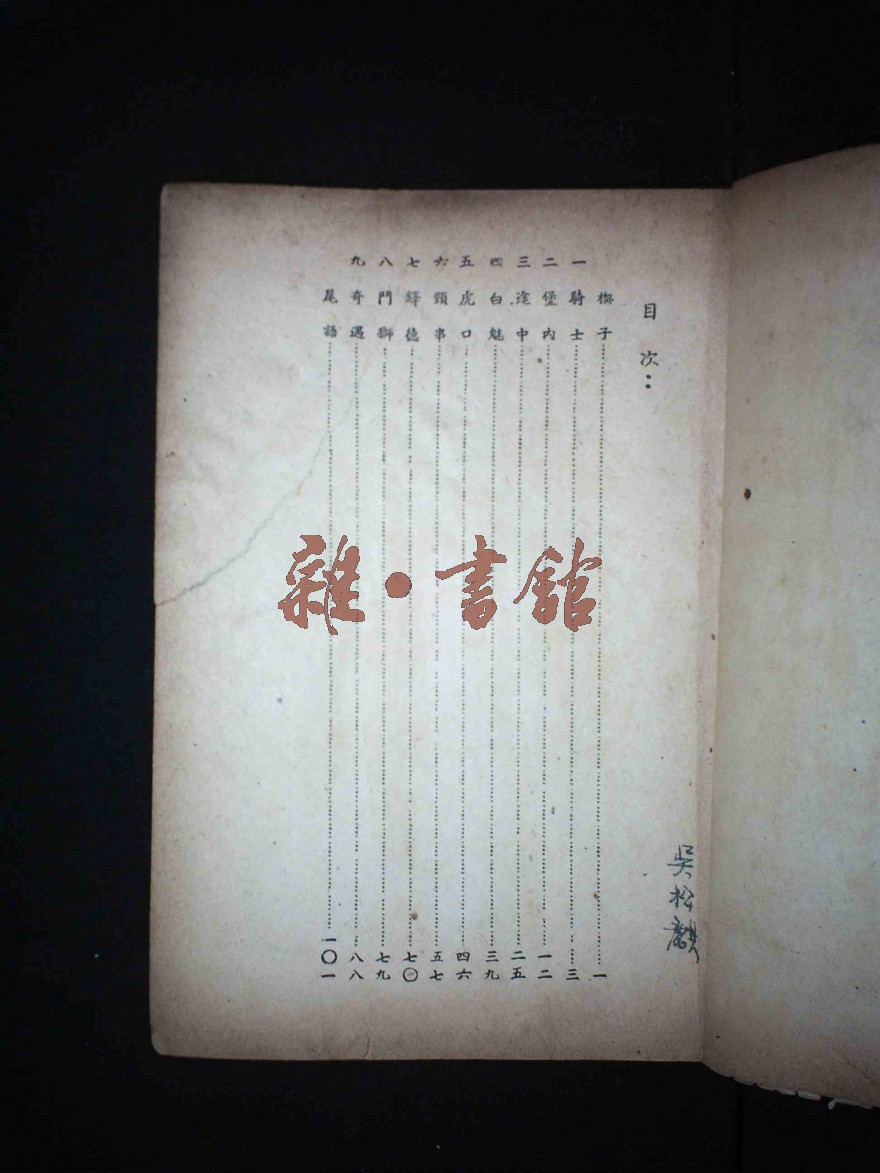 目次：
楔子一
一騎士三
二堡內一二
三途中二五
四白魅三九
五虎口四六
六頸事五七
七鐸德七〇
八鬥獅七九
九奇遇八八
尾語一〇一
雜·書舘
吳松